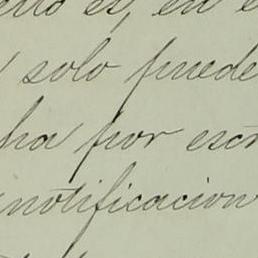 es, en
solo puede
ha por escr
notificacion